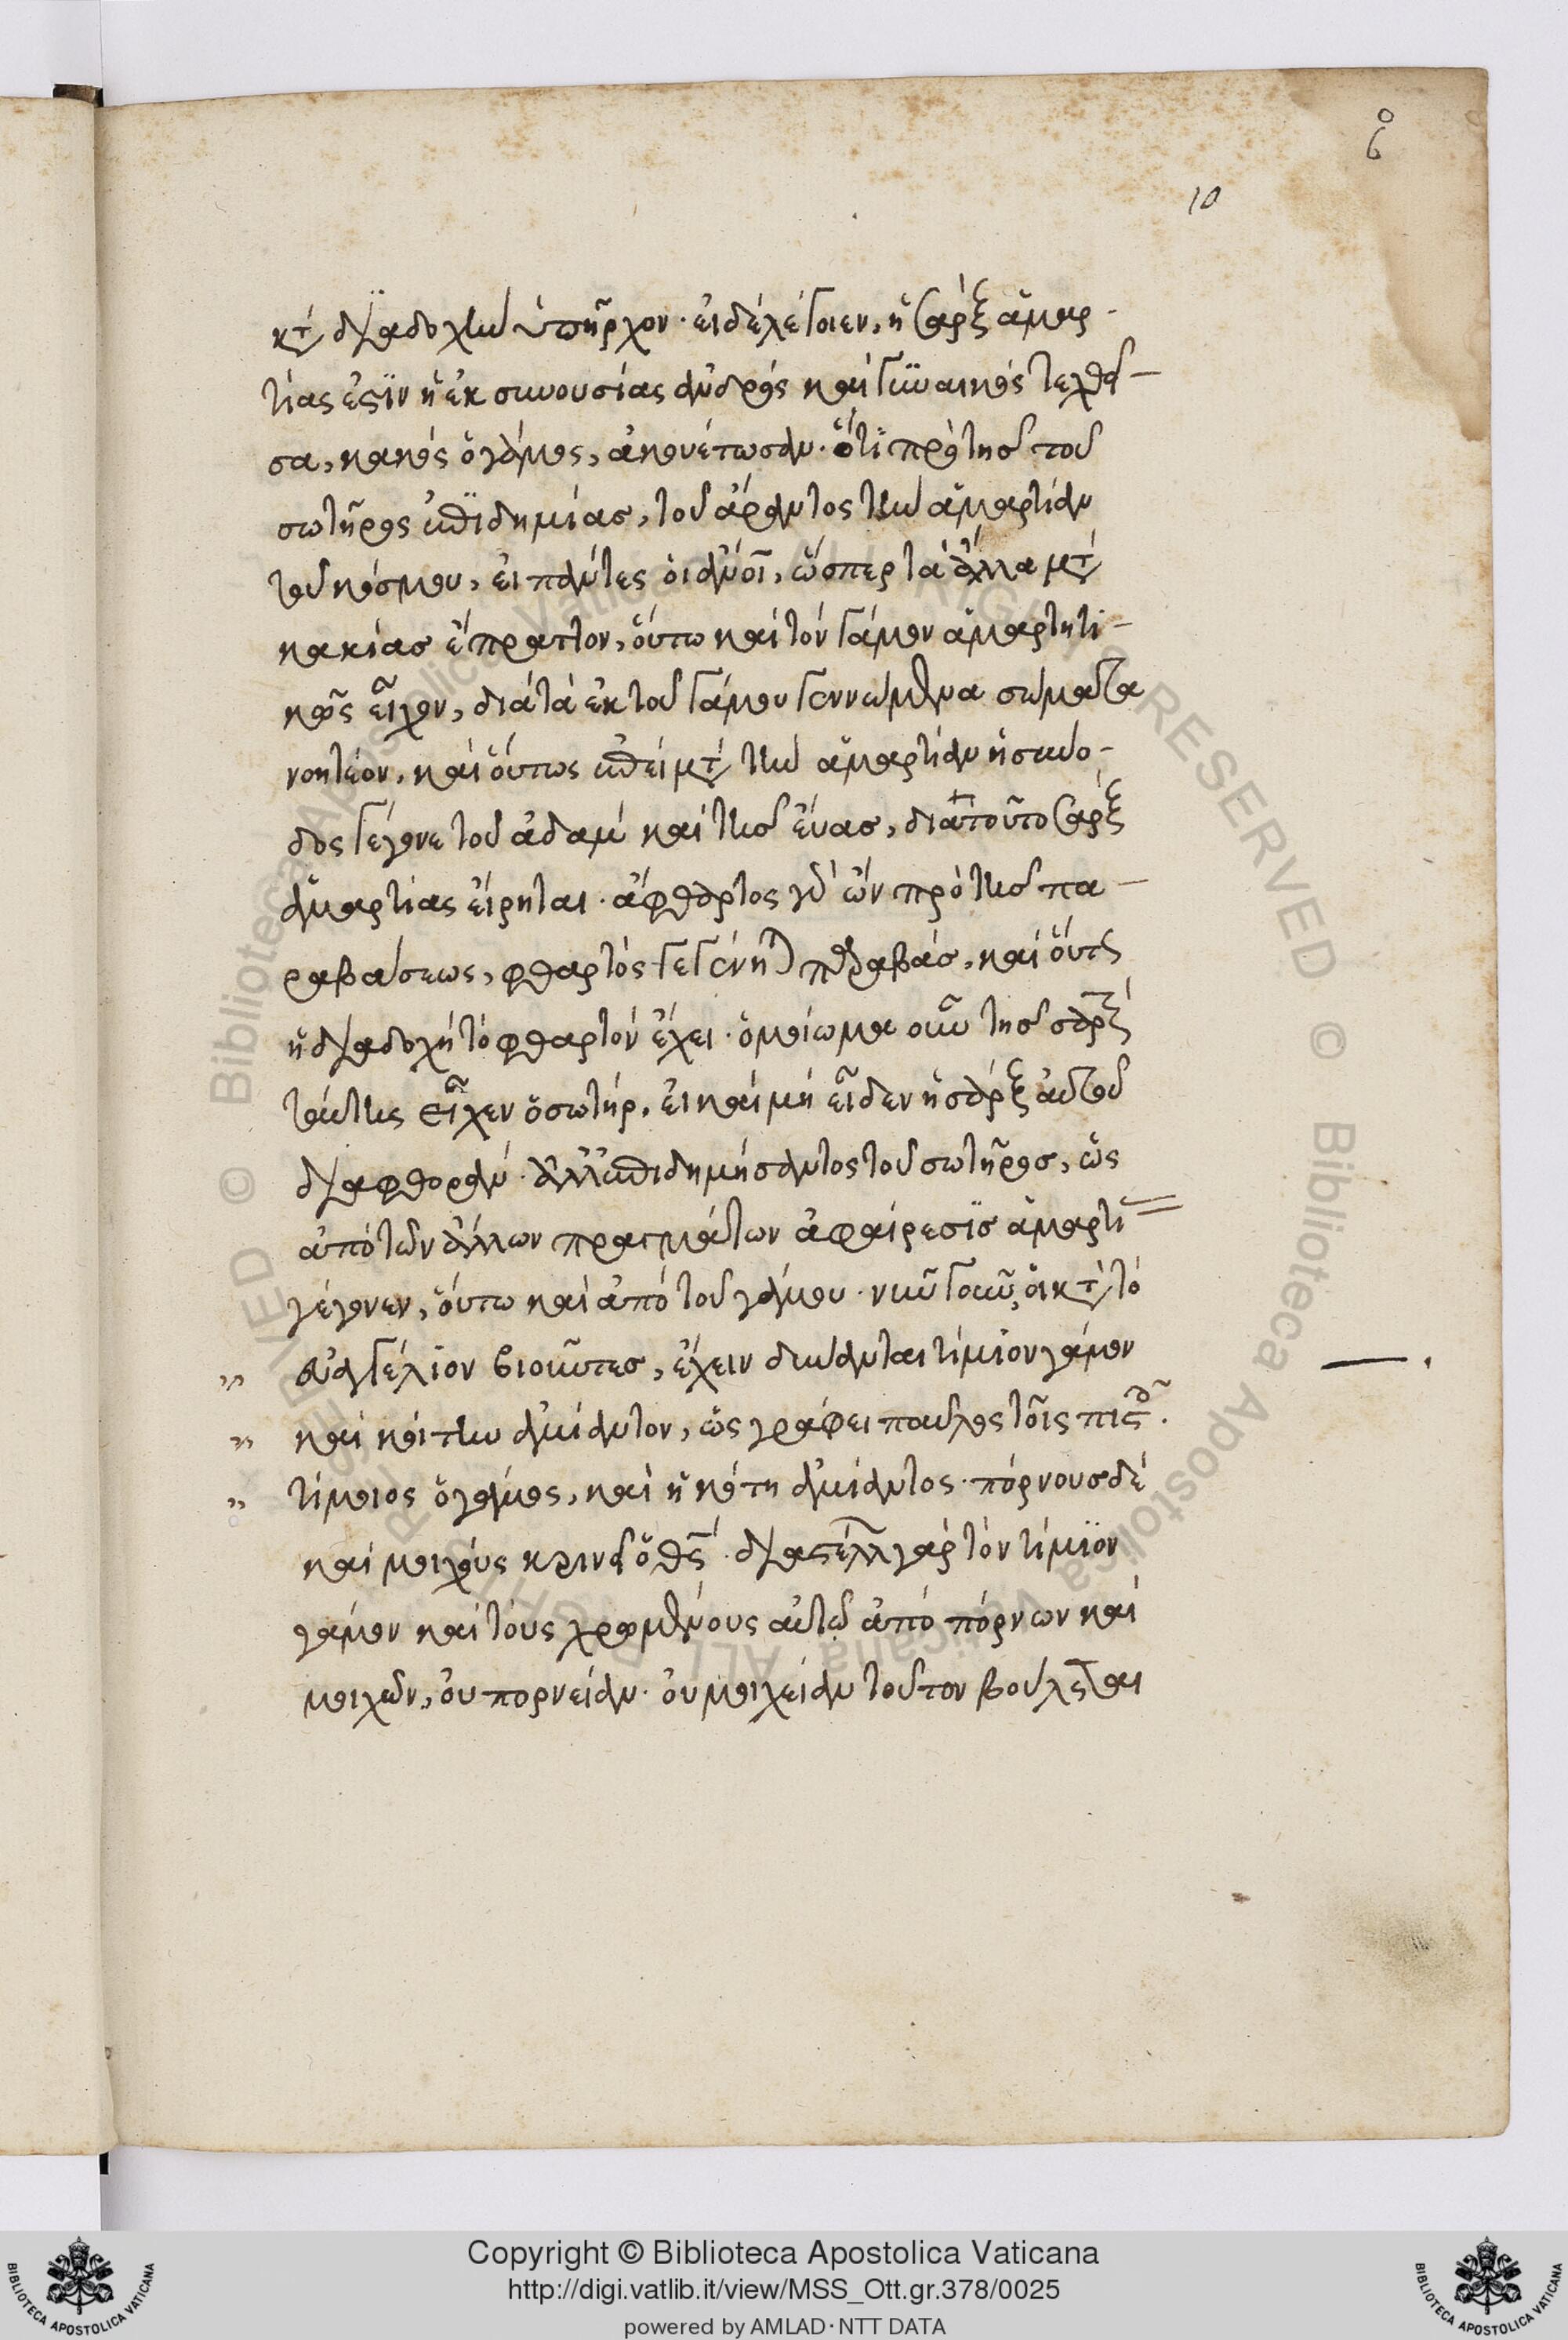 ϛ̊
10
κτ̀ διαδοχὴν ὑπῆρχον· εἰ δὲ λέγοιεν, ἡ σὰρξ ἁμαρ-
τίας ἐστὶν ἡ ἐκ συνουσίας ἀνδρὸς καὶ γυναικὸς τεχθεῖ-
σα, κακὸς ὁ γάμος, ἀκουέτωσαν· ὅτι πρὸ τῆς τοῦ
σωτῆρος ἐπιδημίας, τοῦ ἄραντος τὴν ἁμαρτίαν
τοῦ κόσμου, εἰ πάντες οἱ ἄνοι, ὥσπερ τὰ ἄλλα μτ̀
κακίας ἔπραττον, οὕτω καὶ τὸν γάμον ἁμαρτητι-
κῶς εἶχον, διὰ τὰ ἐκ τοῦ γάμου γεννώμενα σώματα
νοητέον, καὶ οὕτως ἐπεὶ μτ̀ τὴν ἁμαρτίαν ἡ σύνο-
δος γέγονε τοῦ ἀδὰμ καὶ τῆς εὔας, διὰ τοῦτο σὰρξ
ἁμαρτίας εἴρηται· ἄφθαρτος γὰρ ὢν πρὸ τῆς πα-
ραβάσεως, φθαρτὸς γεγένηται παραβάς, καὶ οὕτως
ἡ διαδοχὴ τὸ φθαρτὸν ἔχει· ὁμοίωμα οὖν τῆς σαρκὸς
ταύτης εἶχεν ὁ σωτήρ, εἰ καὶ μὴ εἶδεν ἡ σὰρξ αὐτοῦ
διαφθοράν· ἀλλ' ἐπιδημήσαντος τοῦ σωτῆρος, ὡς
ἀπὸ τῶν ἄλλων πραγμάτων ἀφαίρεσις ἁμαρτι
γέγονεν, οὕτω καὶ ἀπὸ τοῦ γάμου· νῦν γοῦν, οἱ κτ̀ τὸ
" εὐαγγέλιον βιοῦντες, ἔχειν δύνανται τίμιον γάμον
" καὶ κοίτην ἀμίαντον, ὡς γράφει παῦλος τοῖς πιστοῖς.
" τίμιος ὁ γάμος, καὶ ἡ κοίτη ἀμίαντος· πόρνους δὲ
καὶ μοιχοὺς κρινεῖ ὁ θς· διαστέλλει γὰρ τὸν τίμιον
γάμον καὶ τοὺς χρωμένους αὐτῷ ἀπὸ πόρνων καὶ
μοιχῶν, οὐ πορνείαν· οὐ μοιχείαν τοῦτον βούλεται
Copyright © Biblioteca Apostolica Vaticana
http://digi.vatlib.it/view/MSS_Ott.gr.378/0025
powered by AMLAD · NTT DATA
BIBLIOTECA APOSTOLICA VATICANA
BIBLIOTECA APOSTOLICA VATICANA